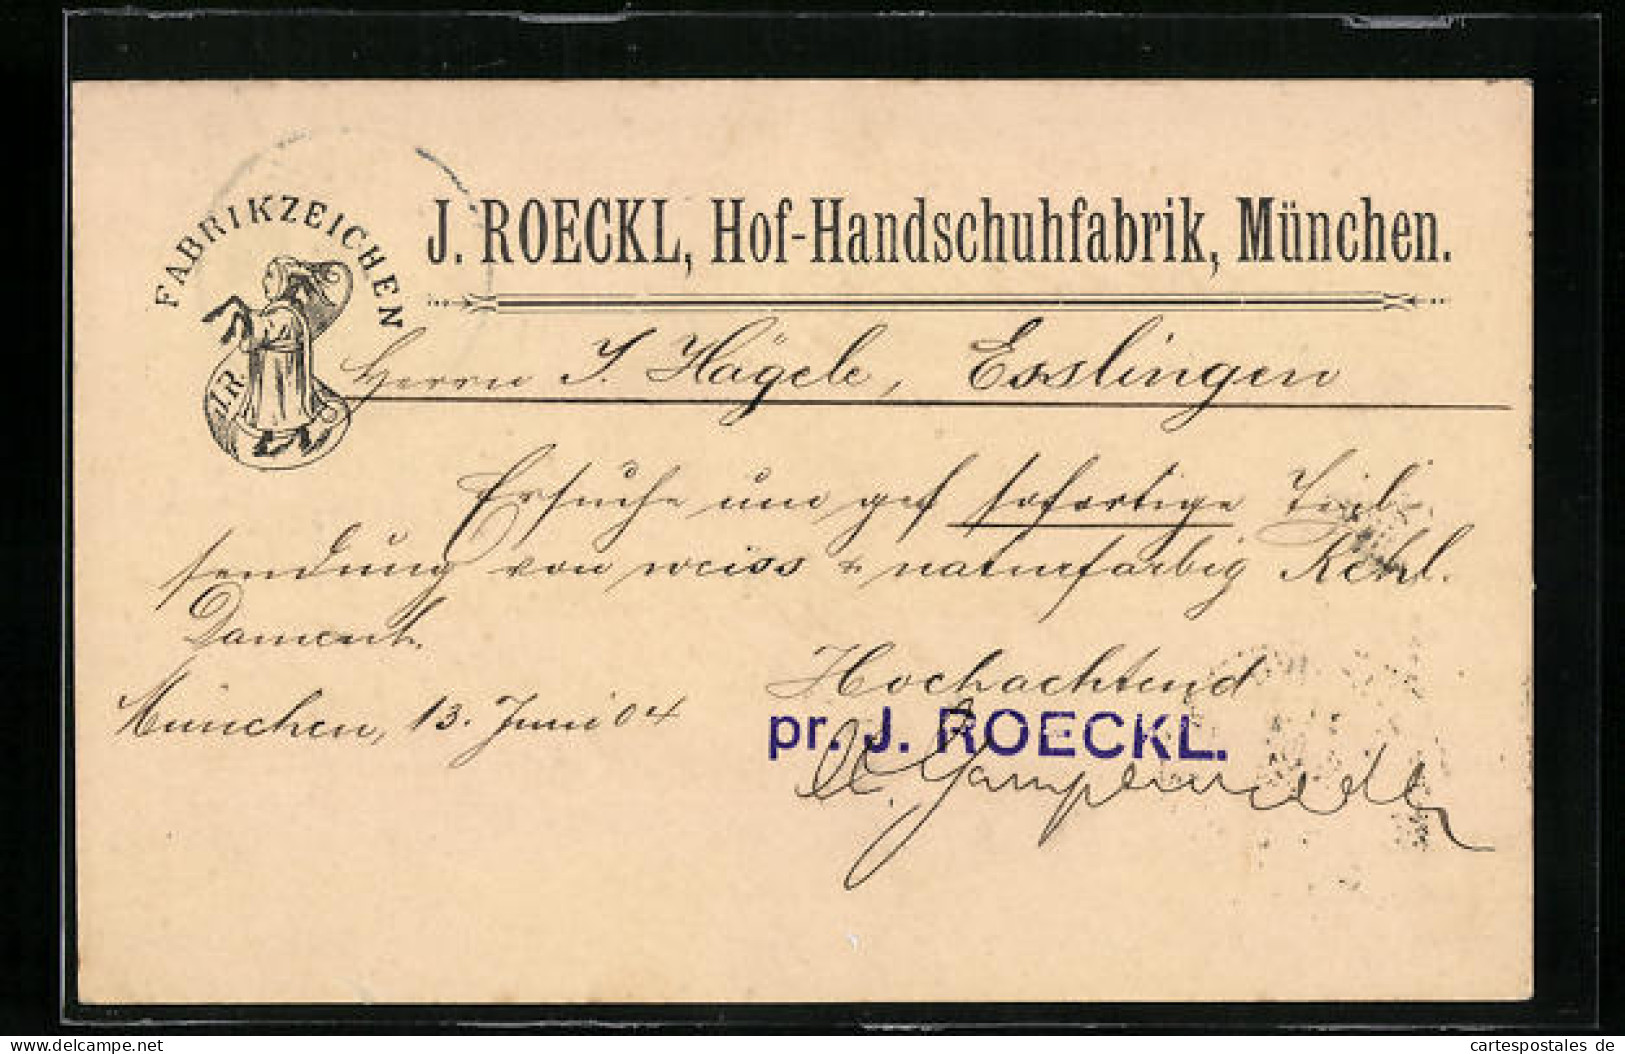 FABRIKZEICHEN
J. R.
J. ROECKL, Hof-Handschuhfabrik, München.
Herrn J. Hägele, Esslingen
Ersuche um gef sofortige Teil-
sendung von weiss & naturfarbig
München, 13. Juni 04
Hochachtend
pr. J. ROECKL.
www.cartespostales.de
cartespostales de